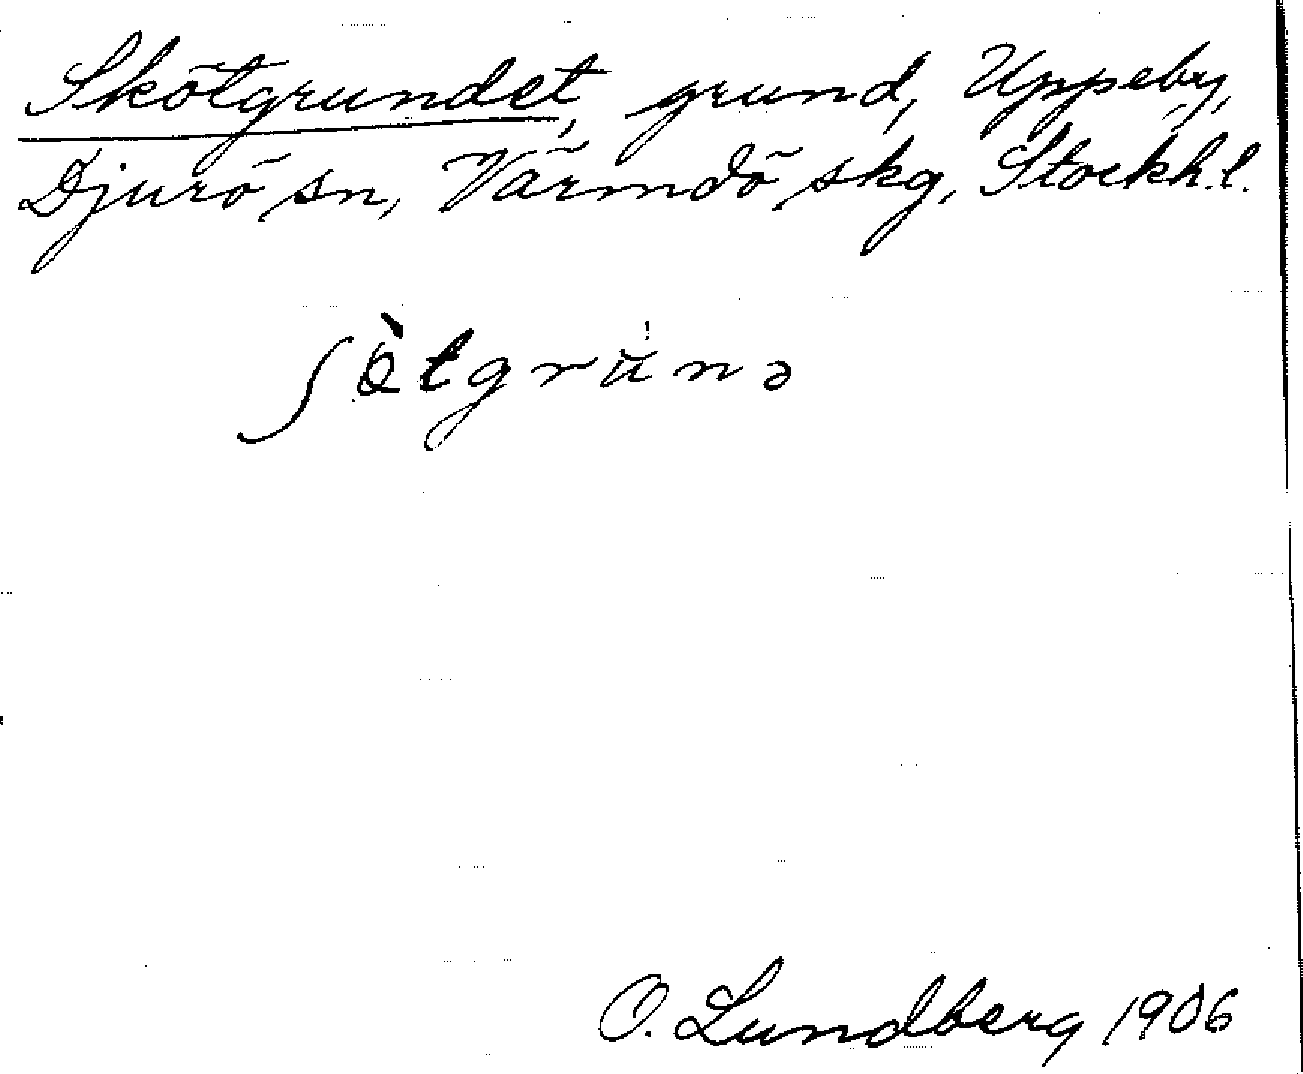 Skötgrundet, grund, Uppeby,
Djurö sn, Värmdö skg, Stockh.l.
ʃö̀tgru̇nə
O. Lundberg 1906